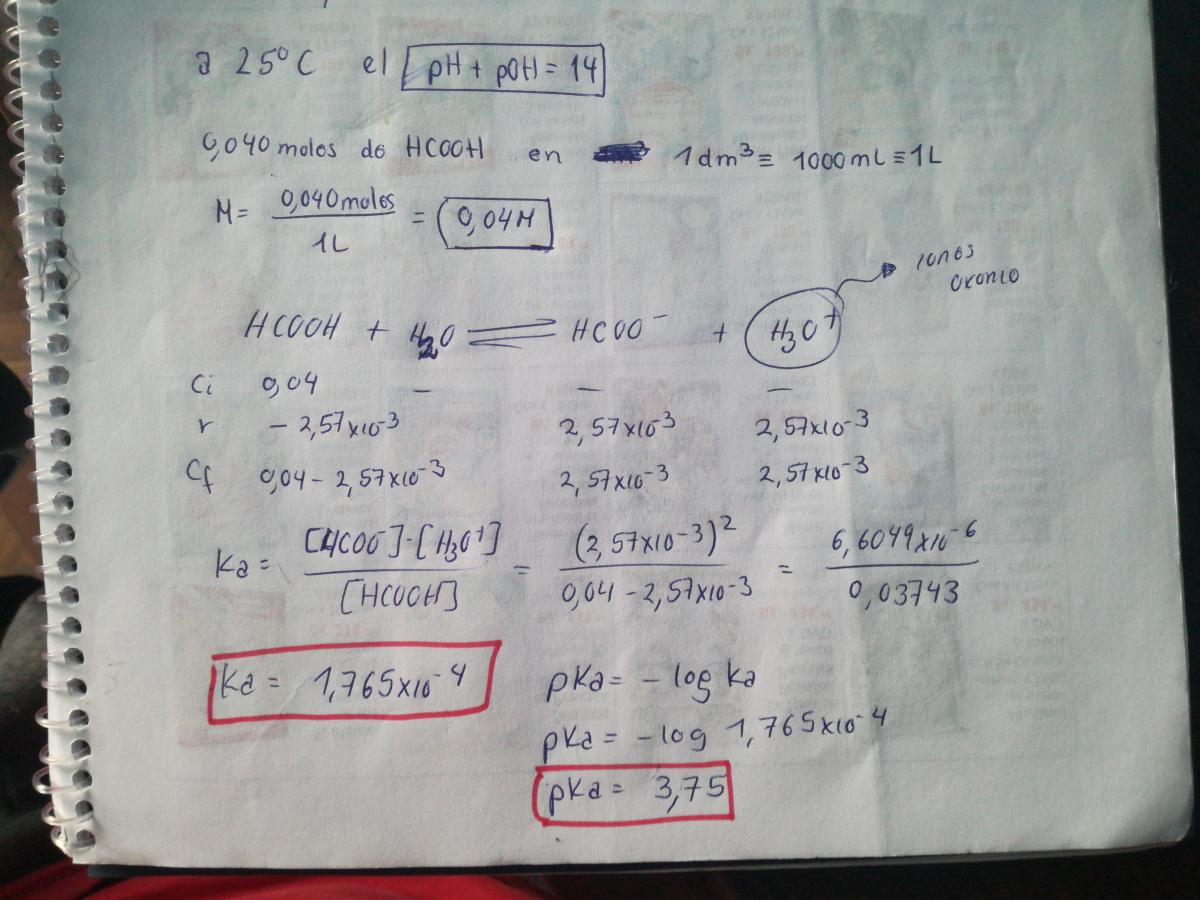 a 25°C el pH + pOH = 14
0,040 moles de HCOOH en 1 dm³ ≡ 1000 mL ≡ 1L
M = 0,040 moles / 1L = 0,04 M
iones oxonio
HCOOH + H₂O ⇌ HCOO⁻ + H₃O⁺
Ci 0,04 — — —
r - 2,57x10⁻³ 2,57x10⁻³ 2,57x10⁻³
Cf 0,04 - 2,57x10⁻³ 2,57x10⁻³ 2,57x10⁻³
Ka = [HCOO⁻]·[H₃O⁺] / [HCOOH] = (2,57x10⁻³)² / 0,04 - 2,57x10⁻³ = 6,6049x10⁻⁶ / 0,03743
Ka = 1,765x10⁻⁴
pKa = - log ka
pKa = - log 1,765x10⁻⁴
pKa = 3,75